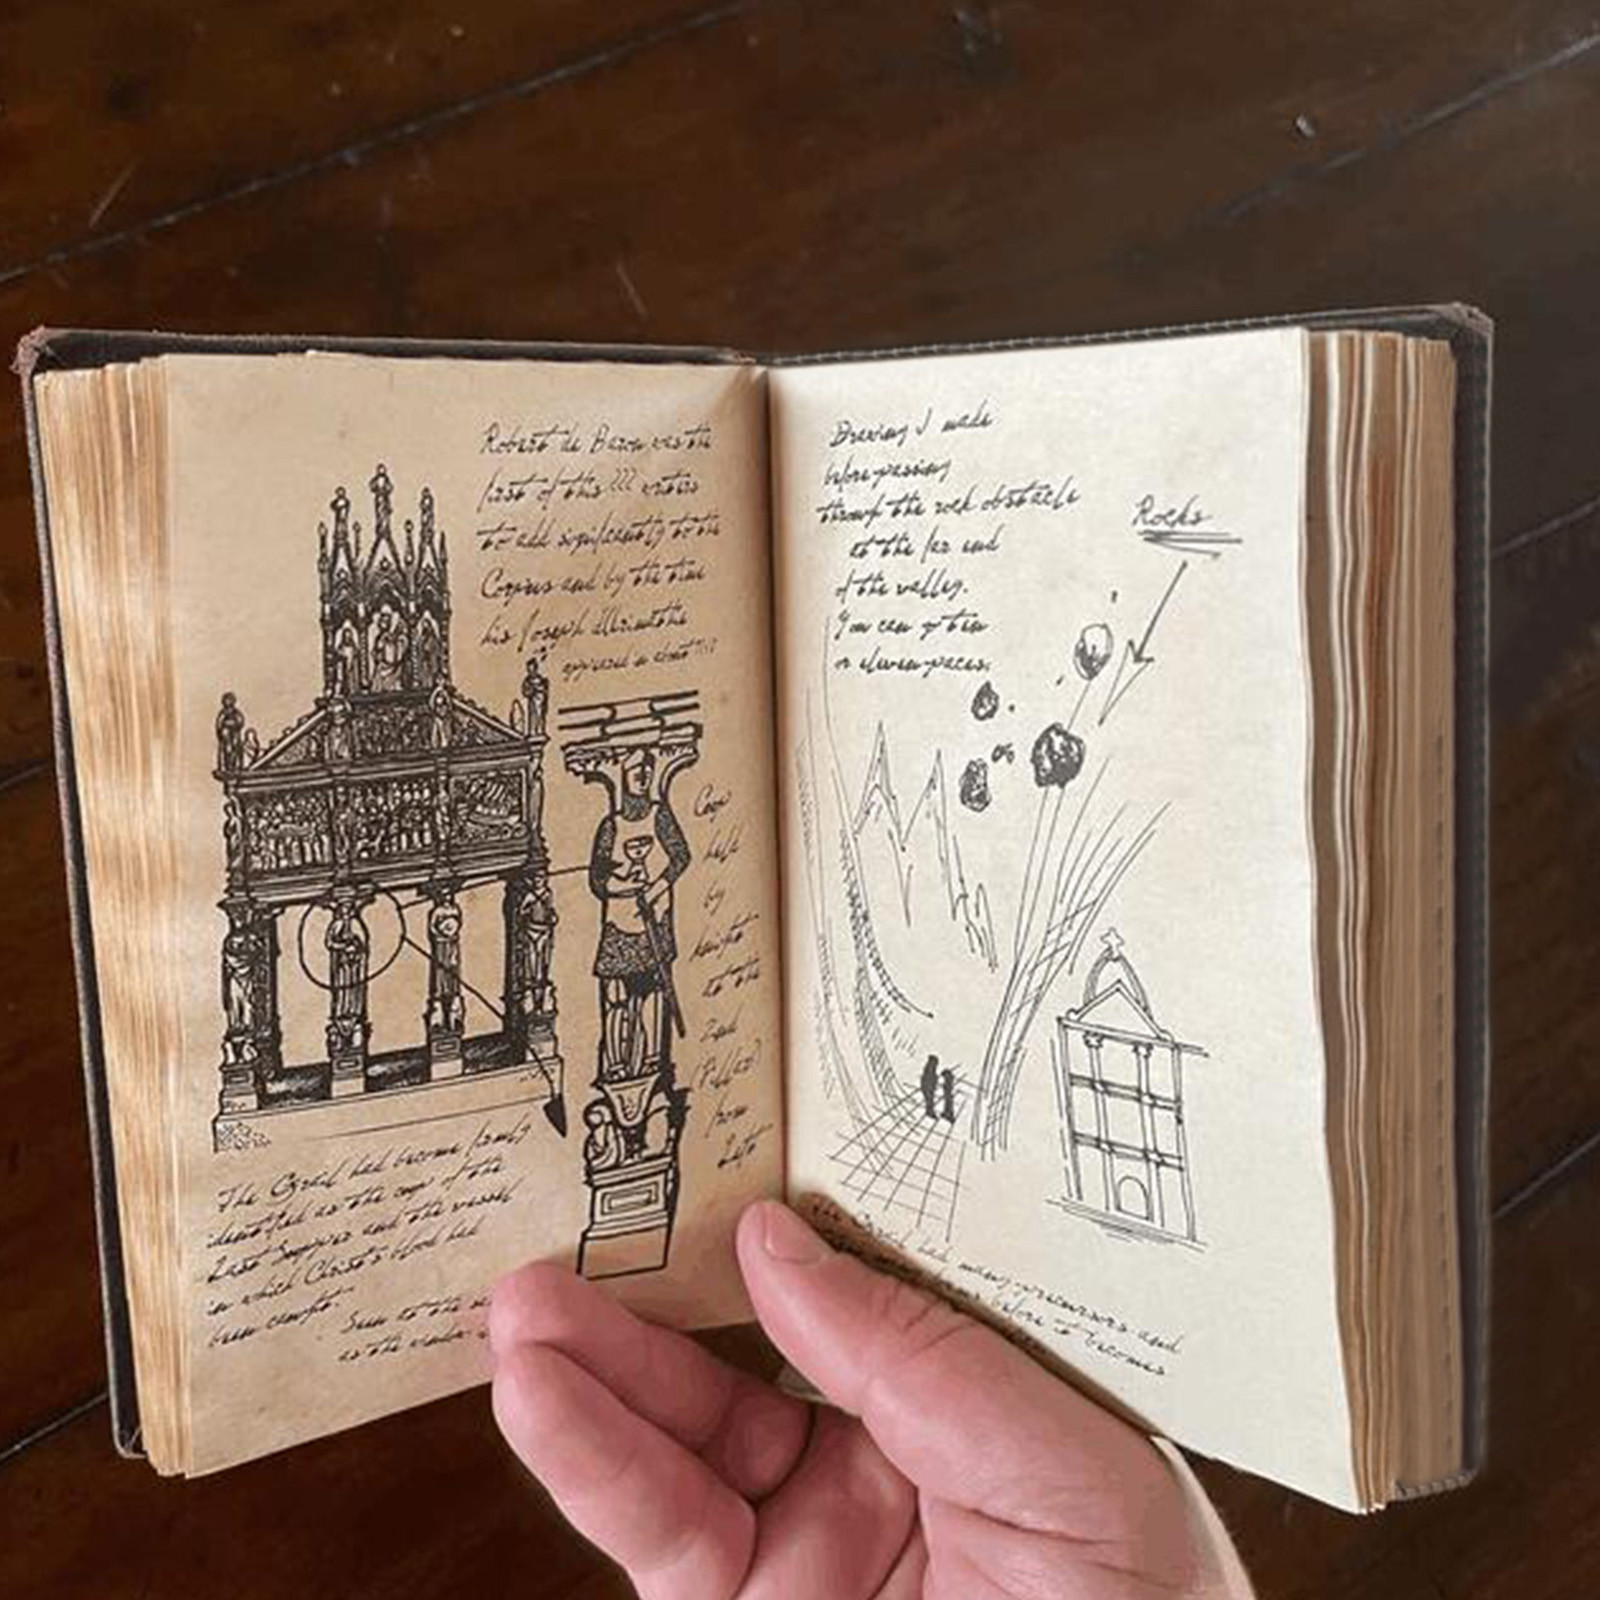 Robert de Boron was the
first of this ??? writers
to add significantly to the
Corpus and by the time
his Joseph d'Arimathe
appeared in about
Cup
held
by
knight
at the
2nd
(Pillar)
from
Left
The Grail had become firmly
identified as the cup of the
Last Supper and the vessel
in which Christ's blood had
been caught.
Seen to the
as the
Drawing I made
before passing
through the rock obstacle
at the far end
of the valley.
You can go ten
or eleven paces.
Rocks
or
The Grail had many precursors and
before it becomes